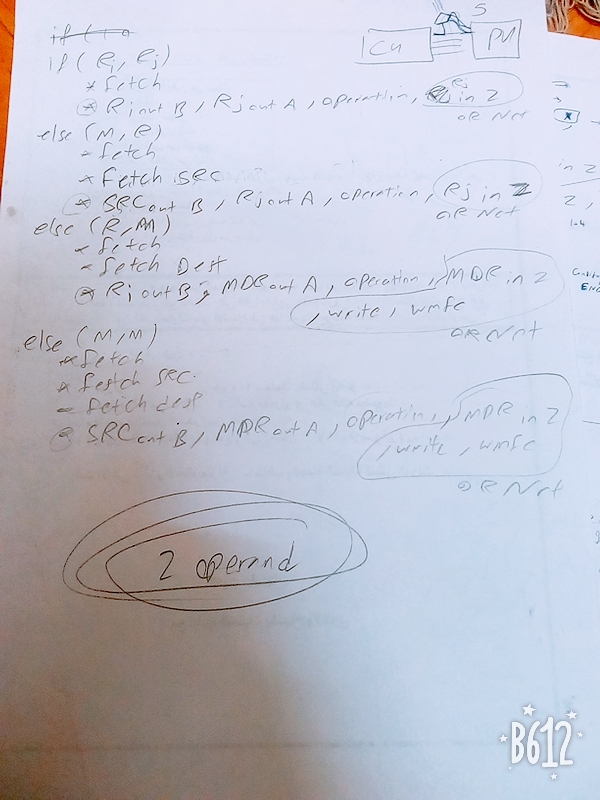 if (
if (Ri, Rj)
* fetch
* Rj out B, Rj out A, operation, Rj in 2
OR Not
else (M, R)
* fetch
* Fetch SRC
* SRC out B, Rj out A, operation, Rj in 2
OR Not
else (R, M)
* fetch
* fetch Dest
* Rj out B, MDR out A, operation, MDR in 2
, write, wmfc
OR Not
else (M, M)
* fetch
* festch SRC
- fetch dest
* SRC out B, MDR out A, operation, MDR in 2
, write, wmfc
OR Not
2 operand
CU
S
PU
in 2
2,
B612